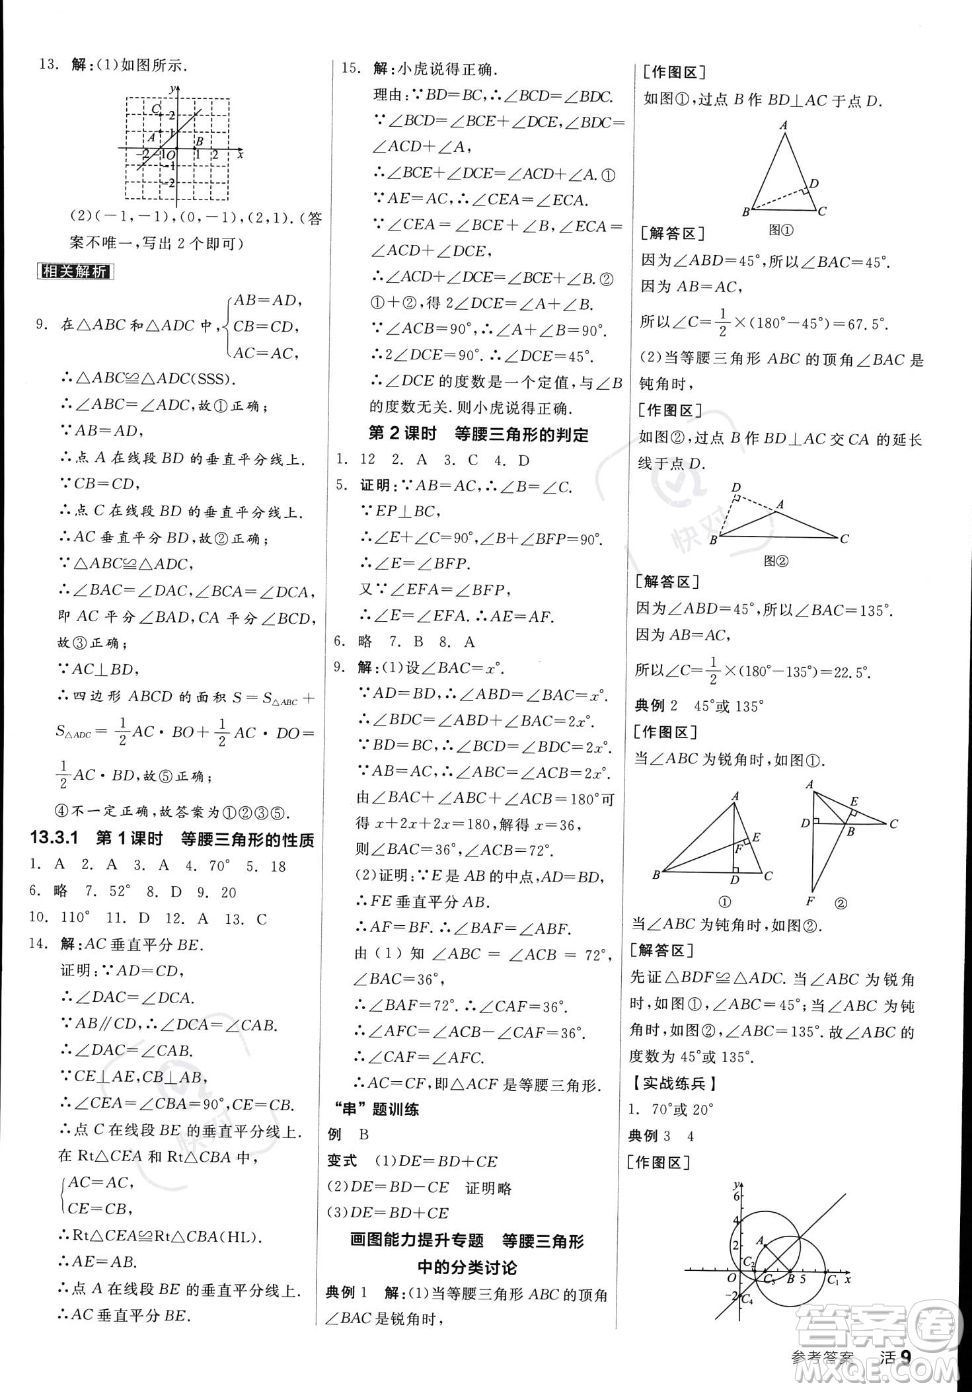 13. 解:(1)如图所示.
y
C
2
1
A
B
-2 -1 O 1 2 x
-1
-2
(2)(-1,-1),(0,-1),(2,1).(答
案不唯一,写出2个即可)
相关解析
9. 在△ABC和△ADC中,{AB=AD,
CB=CD,
AC=AC,
∴△ABC≌△ADC(SSS).
∴∠ABC=∠ADC,故①正确;
∵AB=AD,
∴点A在线段BD的垂直平分线上.
∵CB=CD,
∴点C在线段BD的垂直平分线上.
∴AC垂直平分BD,故②正确;
∵△ABC≌△ADC,
∴∠BAC=∠DAC,∠BCA=∠DCA,
即AC平分∠BAD,CA平分∠BCD,
故③正确;
∵AC⊥BD,
∴四边形ABCD的面积S=S△ABC+
S△ADC=1/2AC·BO+1/2AC·DO=
1/2AC·BD,故⑤正确;
④不一定正确,故答案为①②③⑤.
13.3.1 第1课时 等腰三角形的性质
1. A 2. A 3. A 4. 70° 5. 18
6. 略 7. 52° 8. D 9. 20
10. 110° 11. D 12. A 13. C
14. 解:AC垂直平分BE.
证明:∵AD=CD,
∴∠DAC=∠DCA.
∵AB∥CD,∴∠DCA=∠CAB.
∴∠DAC=∠CAB.
∵CE⊥AE,CB⊥AB,
∴∠CEA=∠CBA=90°,CE=CB.
∴点C在线段BE的垂直平分线上.
在Rt△CEA和Rt△CBA中,
{AC=AC,
CE=CB,
∴Rt△CEA≌Rt△CBA(HL).
∴AE=AB.
∴点A在线段BE的垂直平分线上.
∴AC垂直平分BE.
15. 解:小虎说得正确.
理由:∵BD=BC,∴∠BCD=∠BDC.
∵∠BCD=∠BCE+∠DCE,∠BDC=
∠ACD+∠A,
∴∠BCE+∠DCE=∠ACD+∠A.①
∵AE=AC,∴∠CEA=∠ECA.
∵∠CEA=∠BCE+∠B,∠ECA=
∠ACD+∠DCE,
∴∠ACD+∠DCE=∠BCE+∠B.②
①+②,得2∠DCE=∠A+∠B.
∵∠ACB=90°,∴∠A+∠B=90°.
∴2∠DCE=90°.∴∠DCE=45°.
∴∠DCE的度数是一个定值,与∠B
的度数无关.则小虎说得正确.
第2课时 等腰三角形的判定
1. 12 2. A 3. C 4. D
5. 证明:∵AB=AC,∴∠B=∠C.
∵EP⊥BC,
∴∠E+∠C=90°,∠B+∠BFP=90°.
∴∠E=∠BFP.
又∵∠EFA=∠BFP,
∴∠E=∠EFA.∴AE=AF.
6. 略 7. B 8. A
9. 解:(1)设∠BAC=x°.
∵AD=BD,∴∠ABD=∠BAC=x°.
∴∠BDC=∠ABD+∠BAC=2x°.
∵BD=BC,∴∠ACB=∠BDC=2x°.
∵AB=AC,∴∠ABC=∠ACB=2x°.
由∠BAC+∠ABC+∠ACB=180°可
得x+2x+2x=180.解得x=36.
∴∠ACB=2×36°=72°.
(2)证明:∵E是AB的中点,AD=BD,
∴FE垂直平分AB.
∴AF=BF.∴∠BAF=∠ABC.
由(1)知∠ABC=∠ACB=72°,
∠BAC=36°,
∴∠BAF=72°.∴∠FAC=36°.
∴∠AFC=∠ACB-∠FAC=36°.
∴∠FAC=∠AFC=36°.
∴AC=CF,即△ACF是等腰三角形.
“串”题训练
例 B
变式 (1)DE=BD+CE
(2)DE=BD-CE 证明略
(3)DE=BD+CE
画图能力提升专题 等腰三角形
中的分类讨论
典例1 解:(1)当等腰三角形ABC的顶角
∠BAC是锐角时,
[作图区]
如图①,过点B作BD⊥AC于点D.
A
D
B
C
图①
[解答区]
因为∠ABD=45°,所以∠BAC=45°.
因为AB=AC,
所以∠C=1/2×(180°-45°)=67.5°.
(2)当等腰三角形ABC的顶角∠BAC是
钝角时,
[作图区]
如图②,过点B作BD⊥AC交CA的延长
线于点D.
D
A
B
C
图②
[解答区]
因为∠ABD=45°,所以∠BAC=135°.
因为AB=AC,
所以∠C=1/2×(180°-135°)=22.5°.
典例2 45°或135°
[作图区]
当∠ABC为锐角时,如图①.
A
E
F
B
D
C
①
A
E
D
B
C
F
②
当∠ABC为钝角时,如图②.
[解答区]
先证△BDF≌△ADC.当∠ABC为锐角
时,如图①,∠ABC=45°;当∠ABC为钝
角时,如图②,∠ABC=135°.故∠ABC的
度数为45°或135°.
【实战练兵】
1. 70°或20°
典例3 4
[作图区]
y
6
4
2
A
C₂
O C₃ B 5 C₁ x
-2
C₄
快对
快对
答案圈
MXQE.COM
参考答案 活9